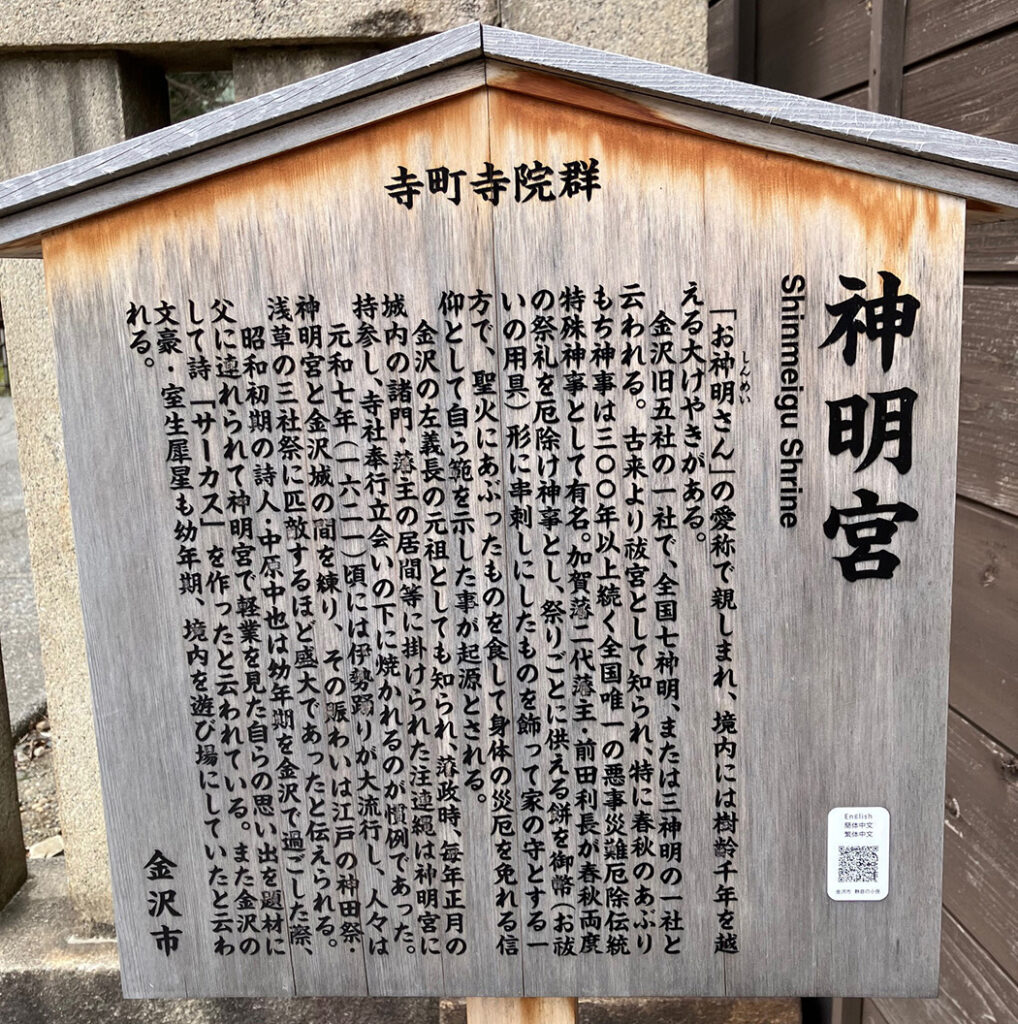 寺町寺院群
神明宮
Shinmeigu Shrine
「お神明さん」の愛称で親しまれ、境内には樹齢千年を越
しんめい
える大けやきがある。
金沢旧五社の一社で、全国七神明、または三神明の一社と
云われる。古来より祓宮として知られ、特に春秋のあぶり
もち神事は三〇〇年以上続く全国唯一の悪事災難厄除伝統
特殊神事として有名。加賀藩二代藩主・前田利長が春秋両度
の祭礼を厄除け神事とし、祭りごとに供える餅を御幣(お祓
いの用具)形に串刺しにしたものを飾って家の守とする一
方で、聖火にあぶったものを食して身体の災厄を免れる信
仰として自ら範を示した事が起源とされる。
金沢の左義長の元祖としても知られ、藩政時、毎年正月の
城内の諸門・藩主の居間等に掛けられた注連縄は神明宮に
持参し、寺社奉行立会いの下に焼かれるのが慣例であった。
元和七年(一六二一)頃には伊勢踊りが大流行し、人々は
神明宮と金沢城の間を練り、その賑わいは江戸の神田祭・
浅草の三社祭に匹敵するほど盛大であったと伝えられる。
昭和初期の詩人・中原中也は幼年期を金沢で過ごした際、
父に連れられて神明宮で軽業を見た自らの思い出を題材に
して詩「サーカス」を作ったと云われている。また金沢の
文豪・室生犀星も幼年期、境内を遊び場にしていたと云わ
れる。
金沢市
English
簡体中文
繁体中文